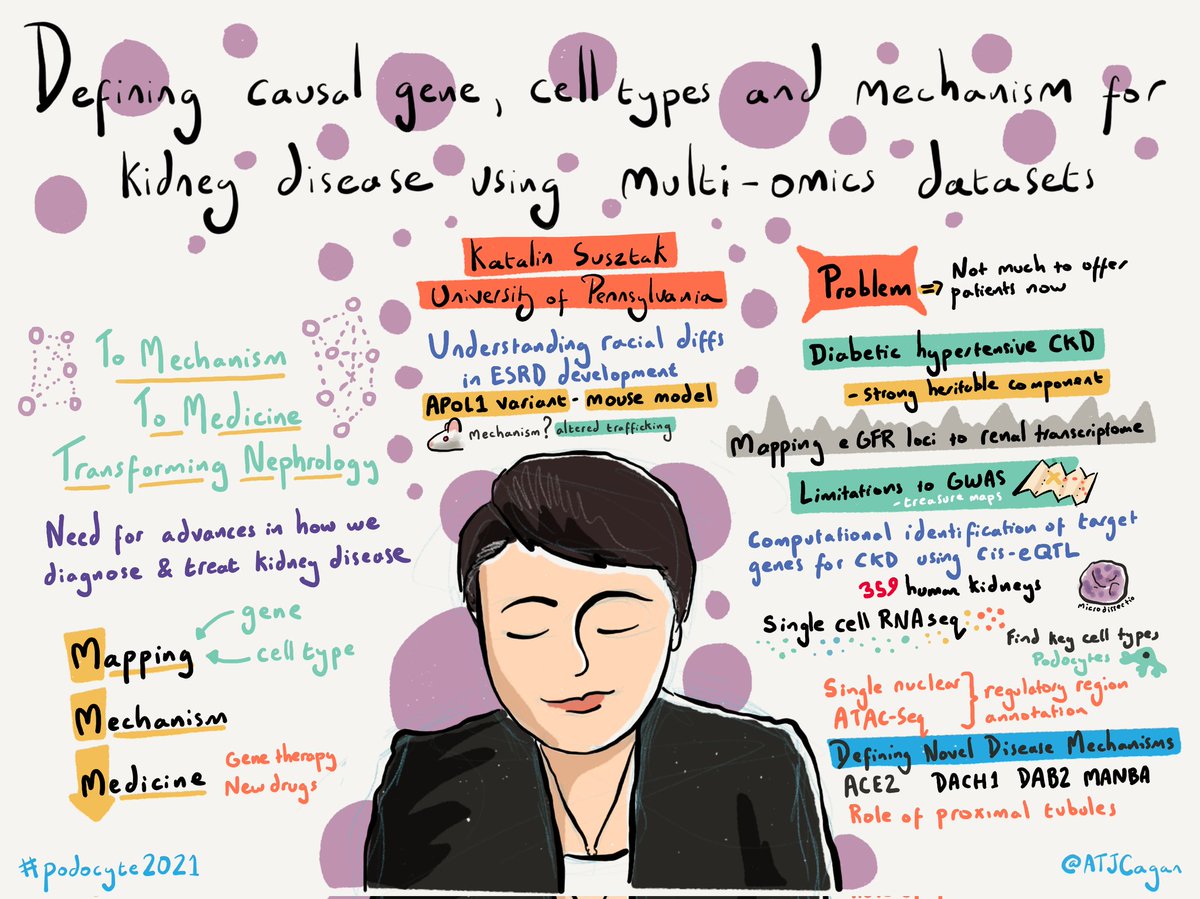 Defining causal gene, cell types and mechanism for
kidney disease using multi-omics datasets
Katalin Susztak
University of Pennsylvania
Understanding racial diffs
in ESRD development
APOL1 variant - mouse model
Mechanism? altered trafficking
To Mechanism
To Medicine
Transforming Nephrology
Need for advances in how we
diagnose & treat kidney disease
gene
cell type
Mapping
Mechanism
Medicine
Gene therapy
New drugs
Problem => Not much to offer
patients now
Diabetic hypertensive CKD
- Strong heritable component
Mapping eGFR loci to renal transcriptome
Limitations to GWAS
- treasure maps
Computational identification of target
genes for CKD using Cis-eQTL
359 human kidneys
Microdissectio
Single cell RNAseq
Find key cell types
Podocytes
Single nuclear
ATAC-Seq
regulatory region
annotation
Defining Novel Disease Mechanisms
ACE2 DACH1 DAB2 MANBA
Role of proximal tubules
#podocyte2021
@ATJCagan